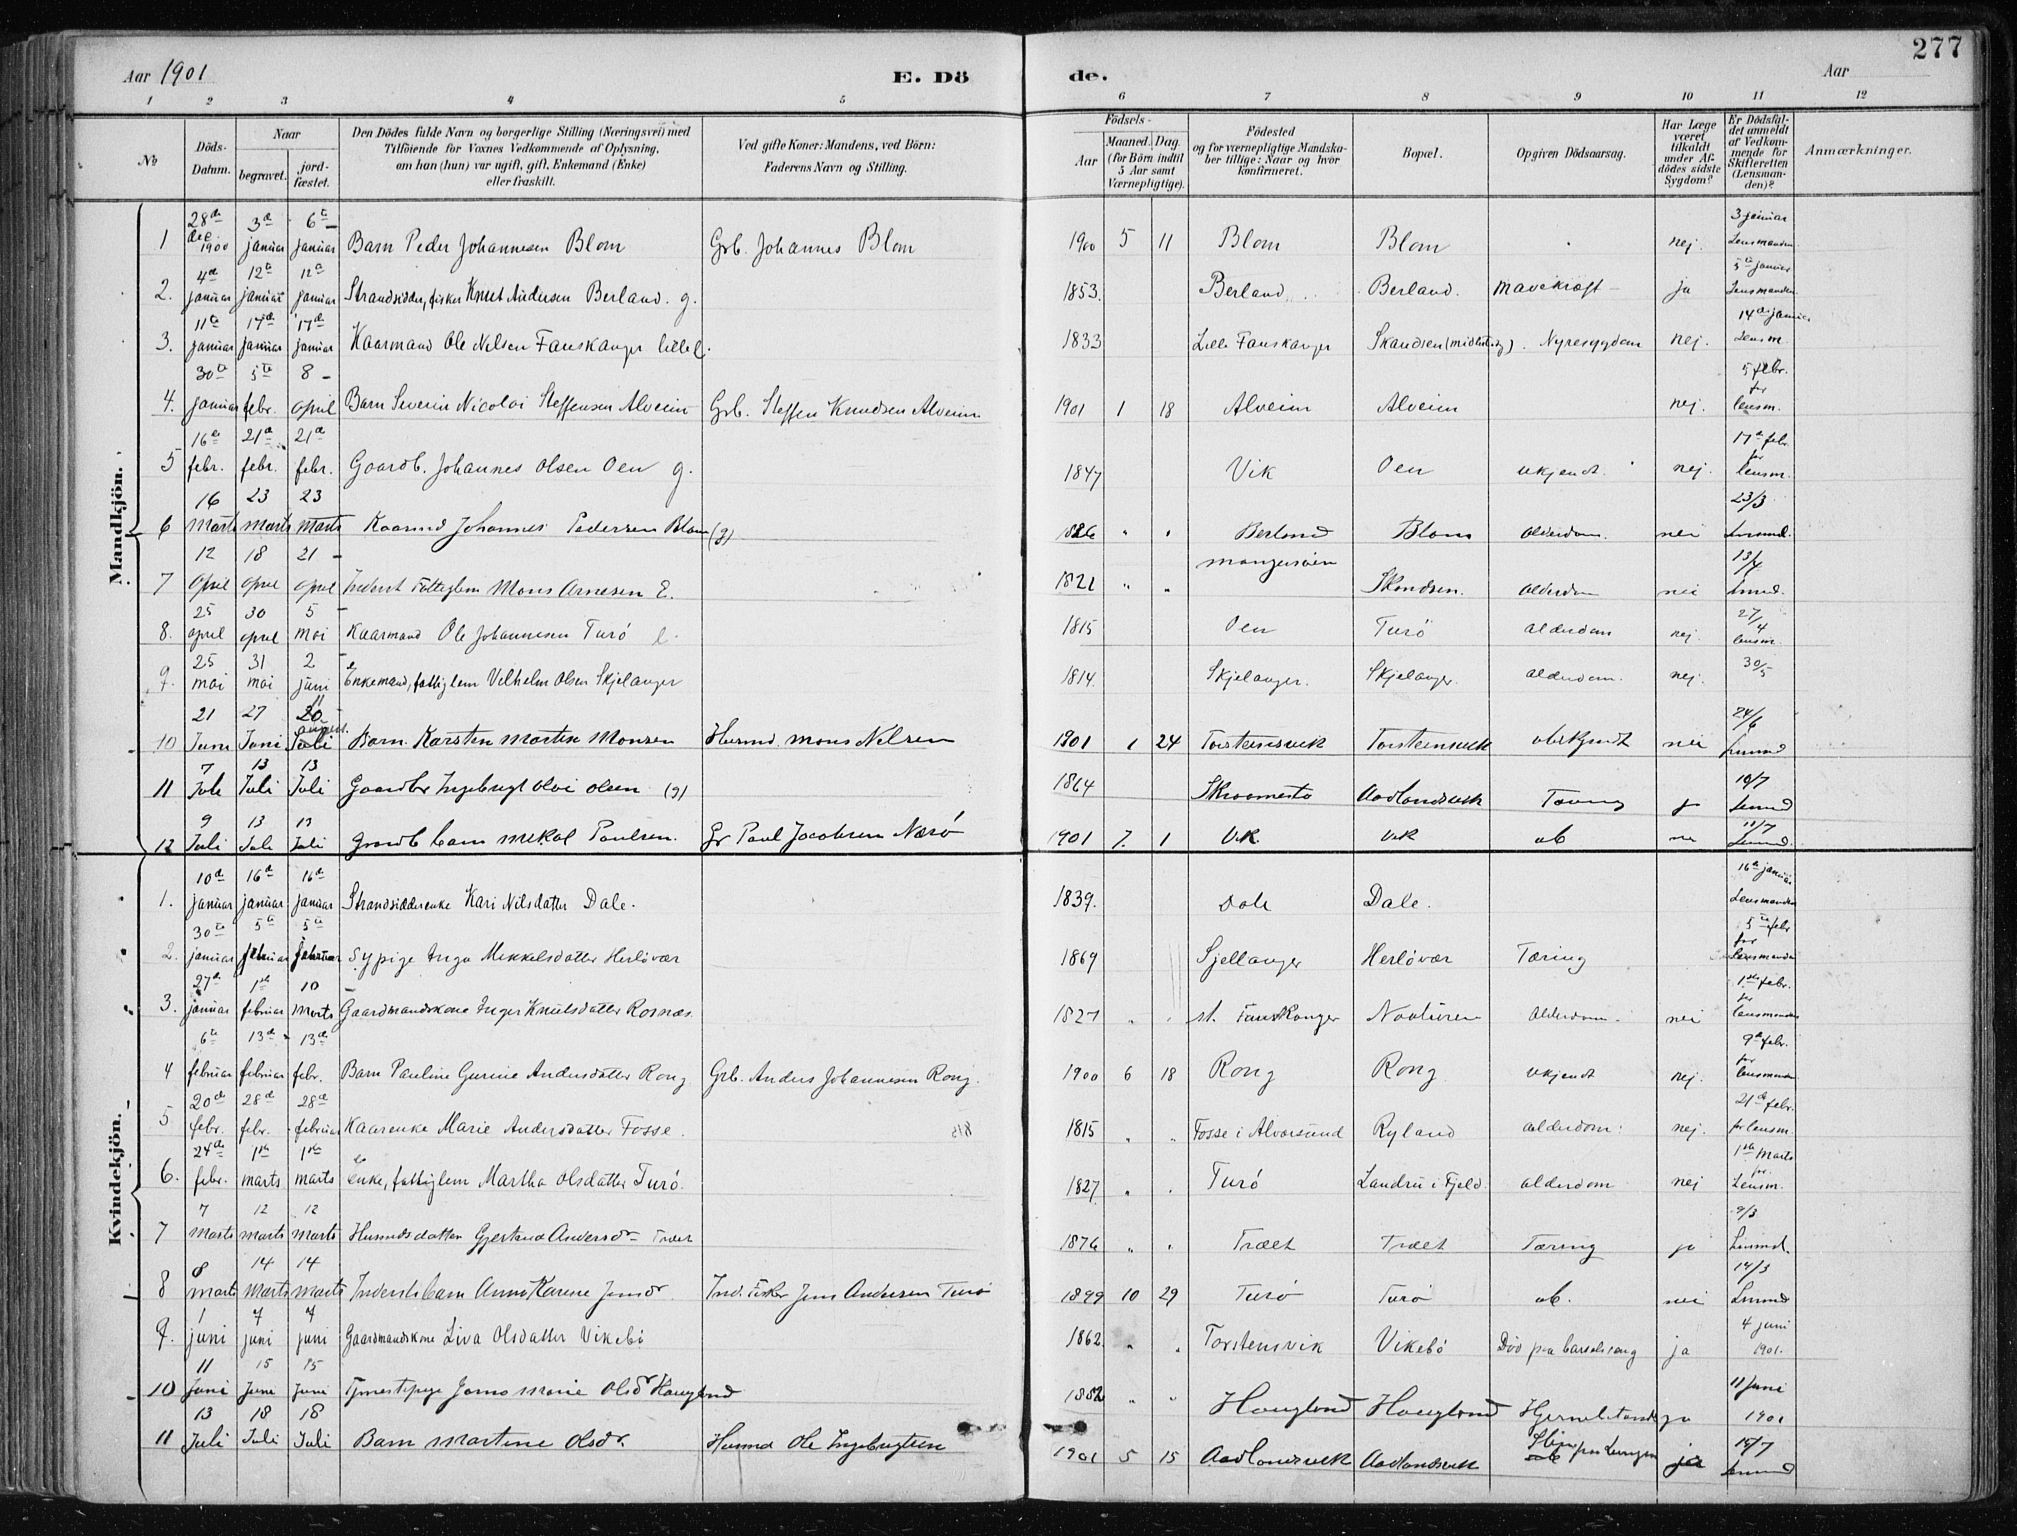 277
Aar 1901 E. Dö de. Aar
1 2 3 4 5 6 7 8 9 10 11 12
No
Döds-Datum.
Naar
begravet.
jord-fæstet.
Den Dödes fulde Navn og borgerlige Stilling (Næringsvei) med
Tilföiende for Voxnes Vedkommende af Oplysning,
om han (hun) var ugift, gift, Enkemand (Enke)
eller fraskilt.
Ved gifte Koner: Mandens, ved Börn:
Faderens Navn og Stilling.
Födsels-
Aar
Maaned. Dag.
(for Börn indtil
5 Aar samt
Værnepligtige).
Födested
og for værnepligtige Mandska-
ber tillige: Naar og hvor
konfirmeret.
Bopæl.
Opgiven Dödsaarsag.
Har Læge
været
tilkaldt
under Af-
dödes sidste
Sygdom?
Er Dödsfal-
det anmeldt
af Vedkom-
mende for
Skifteretten
(Lensman-
den)?
Anmærkninger.
Mandkjön.
1 28de dec. 1900 3d januar 6te januar Barn Peder Johannesen Blom Grb. Johannes Blom 1900 5 11 Blom Blom nej. 3 januar Lensmanden
2. 4d januar 12te januar 12te januar Strandsidder, fisker Knut Andersen Berland. g. 1853. Berland Berland. Mavekræft ja 5te januar Lensmanden
3. 11te januar 17de januar 17de januar Kaarmand Ole Nilsen Fanskanger lille 1833 Lille Fanskanger Skandsen Nyresygdom nej. 14de januar Lensm.
4. 30te januar 5te febr. 8 april Barn Severin Nicolai Steffensen Alveim Grb. Steffen Knudsen Alveim 1901 1 18 Alveim Alveim nej. 5 febr. for lensm.
5 16de febr. 21de febr. 21de febr. Gaardb. Johannes Olsen Oen g. 1847 Vik Oen ukjendt. nej. 17de febr. for lensm.
6 16 marts 23 marts 23 marts Kaarmd Johannes Pedersen Blom (g) 1826 " " Berland Blom alderdom. nei 23/3 Lensmd.
7 12 april 18 april 21 april Inderst Fattiglem Mons Arnesen E. 1821 " " Mangersøien Skandsen. alderdom nei 13/4 Lensmd.
8. 25 april 30 april 5 mai Kaarmand Ole Johannesen Turö 1815 Oen Turö alderdom nej. 27/4 lensm.
9. 25 mai 31 mai 2 juni Enkemand, fattiglem Vilhelm Olsen Skjelanger 1814. Skjelanger. Skjelanger. alderdom. nej. 30/5
10 21 Juni 27 Juni 20 Juli august. Barn Karsten Martin Monsen Husmd. Mons Nilsen 1901 1 24 Torsteinsvik Torsteinsvik ubekjendt nei 24/6 Lensmd
11 7 Juli 13 Juli 13 Juli Gaardbr Ingebrigt Olai Olsen (g) 1864 Skraamestø Aadlandsvik Tæring 10/7 Lensmd
12 9 Juli 13 Juli 13 Juli Gaardb barn Mikal Paulsen. Gr Paul Jacobsen Nærø 1901 7. 1 Vik. Vik ub 11/7 Lensmd.
Kvindekjön.
1. 10de januar 16de januar 16de januar Strandsidderenke Kari Nilsdatter Dale. 1839. Dale Dale. 16de januar Lensmanden
2. 30te januar 5te februar 5te februar Sypige Inga Mikkelsdatter Herløvær 1869 Sjellanger Herløvær Tæring 5te febr for Lensmanden
3. 27de januar 1ste februar 10 marts Gaardmandskone Inger Knutsdatter Rosnæs. 1827 " " st. Fanskanger Nautøren alderdom. nei 1ste febr. for lensmanden
4 6te februar 13de februar 13de febr. Barn Pauline Gurine Andersdatter Rong Grb. Anders Johannesen Rong. 1900 6 18 Rong Rong ukjendt nej. 9de febr. for lensmanden
5 20de febr. 28de febr. 28de februar Kaarenke Marie Andersdatter Fosse. 1815 " " Fosse i Alversund Ryland alderdom. nej. 21de febr. for lensm.
6. 24de febr. 1ste marts 1ste marts Enke, fattiglem Martha Olsdatter Turö. 1827 " " Turö Landru i Fjeld. alderdom nej 1ste Marts for. Lensm.
7 7 marts 12 marts 12 marts Husmdsdatter Gjertrud Andersdr Træet 1876 " " Træet Træet Tæring ja 9/3 Lensmd.
8 8 marts 14 marts 14 marts Inderstebarn Anna Karine Jensdr. Ind. Fisker Jens Andersen Turø 1899 10 29 Turø Turø ub. nei 14/3 Lensmd
9. 1 juni 7 juni 7 juni Gaardmandskone Liva Olsdatter Vikebö 1862 " " Torstensvik Vikebö Död paa barselseng ja 4 juni 1901.
10 11 Juni 15 Juni 15 Juni Tjenestepige Marie Olsdr Haugland 1852 " " Haugland Haugland ja 11 Juni 1901
11 13 Juli 18 Juli 18 Juli Barn Martine Olsdr. Husmd Ole Ingebrigtsen 1901 5 15 Aadlandsvik Aadlandsvik Slim paa Lungen ja 15/7 Lensmd